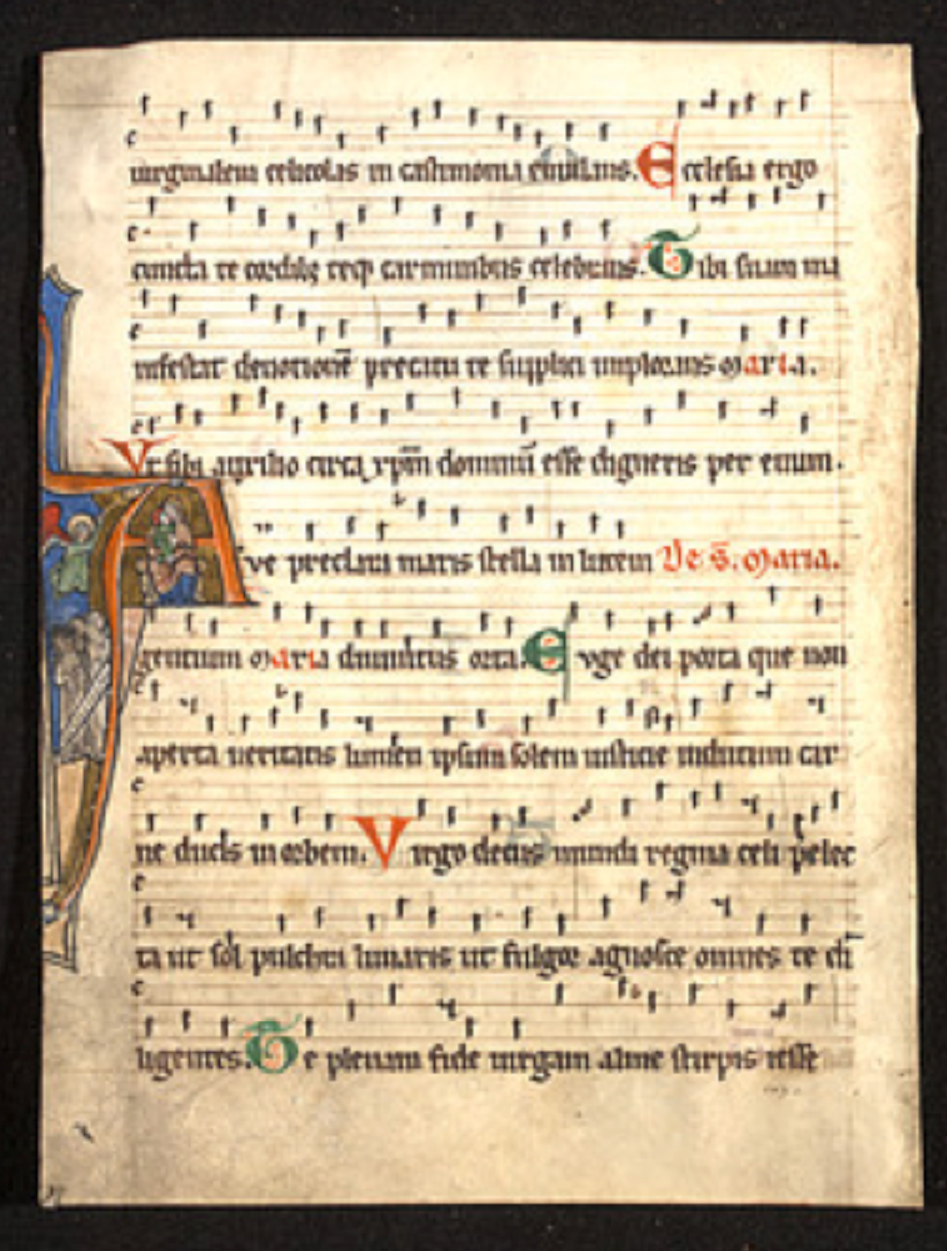 uirginalem celicolas in castimonia Ecclesia ergo
cuncta te cordib; teq; carminibus celebrans. Tibi suam ma
nifestat deuotionē precatu te supplici implorans maria.
Vt sibi auxilio circa xp̄m dominū esse digneris per euum.
Ave preclara maris stella in lucem De s̄. maria.
gentium maria diuinitus orta. Evge dei porta que non
aperta ueritatis lumen ipsum solem iusticie indutum car
ne ducis in orbem. Virgo decus mundi regina celi p̄elec
ta ut sol pulchra lunaris ut fulgor agnosce omnes te di
ligentes. Te plenam fide uirgam alme stirpis iesse